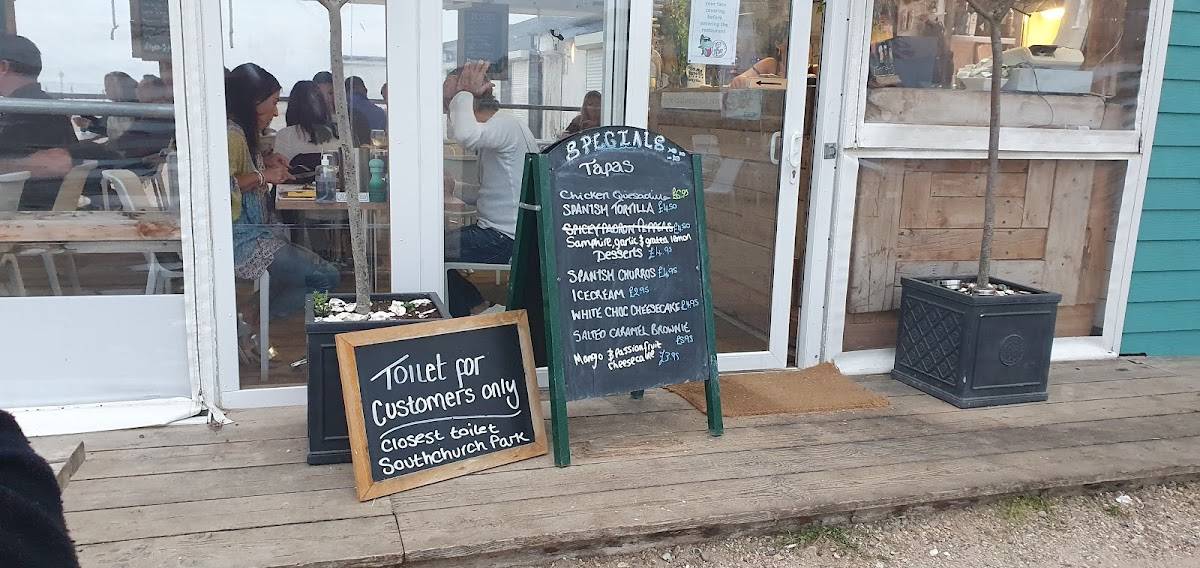 your face
covering
before
entering the
restaurant
SPECIALS
Tapas
Chicken Quesadilla £5.95
SPANISH TORTILLA £4.50
SPICEY PADRON PEPPERS £4.50
Samphire, garlic & grated lemon
Desserts £4.95
SPANISH CHURROS £4.95
ICECREAM £2.95
WHITE CHOC CHEESECAKE £4.95
SALTED CARAMEL BROWNIE
£5.95
Mango & passionfruit
cheesecake £3.95
Toilet for
Customers only
closest toilet
Southchurch Park